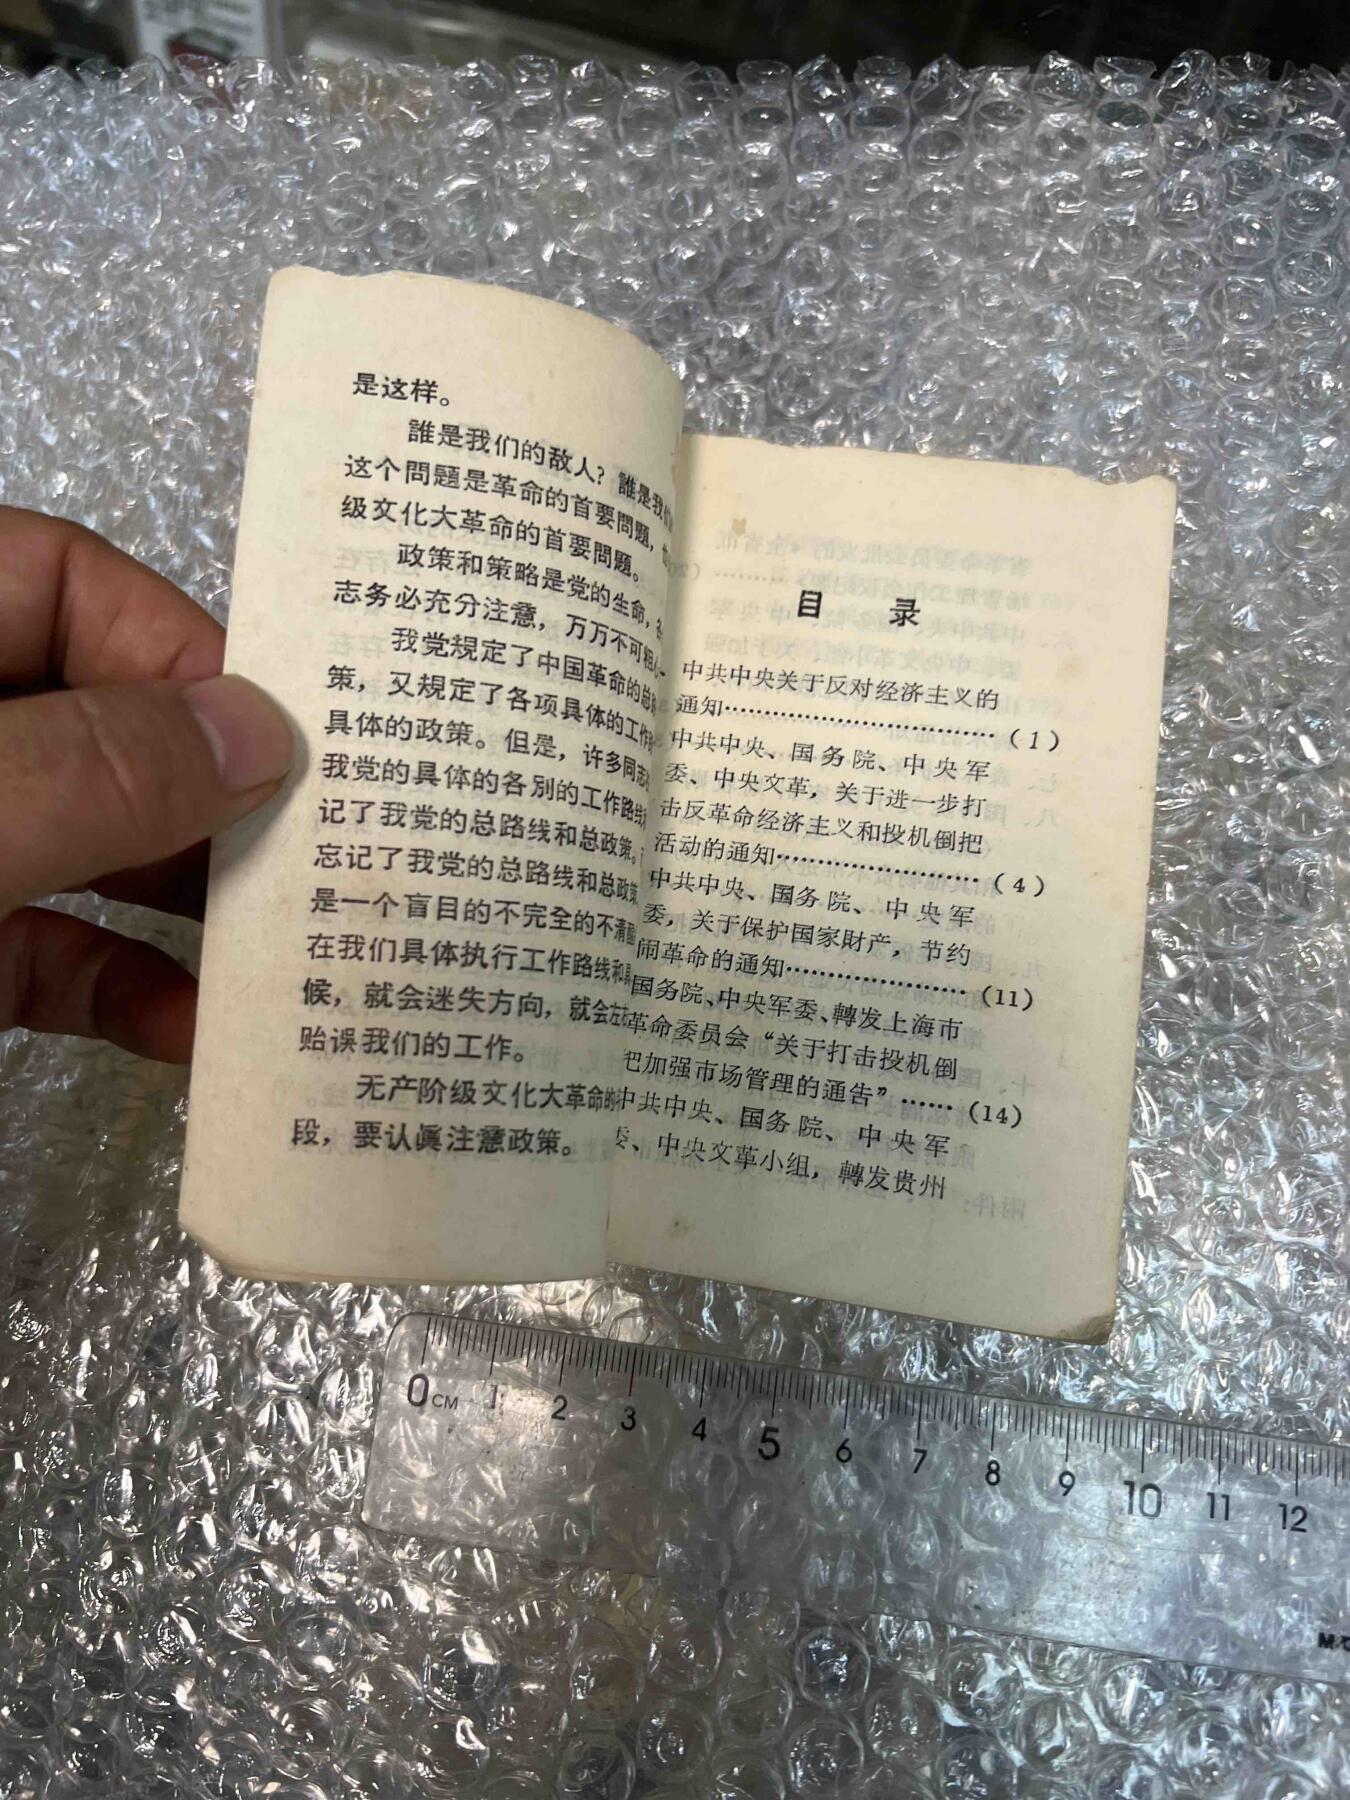 是这样。
誰是我们的敌人？誰是我们
这个問題是革命的首要問題，
级文化大革命的首要問題。
政策和策略是党的生命，各
志务必充分注意，万万不可粗心
我党規定了中国革命的总
策，又規定了各项具体的工作
具体的政策。但是，许多同志
我党的具体的各別的工作路线
记了我党的总路线和总政策。
忘记了我党的总路线和总政策
是一个盲目的不完全的不清醒
在我们具体执行工作路线和具
候，就会迷失方向，就会左
贻误我们的工作。
无产阶级文化大革命的
段，要认眞注意政策。
目 录
中共中央关于反对经济主义的
通知……………………………（1）
中共中央、国务院、中央军
委、中央文革，关于进一步打
击反革命经济主义和投机倒把
活动的通知……………………（4）
中共中央、国务院、中央军
委，关于保护国家財产，节约
闹革命的通知…………………（11）
国务院、中央军委、轉发上海市
革命委员会“关于打击投机倒
把加强市场管理的通告”……（14）
中共中央、国务院、中央军
委、中央文革小组，轉发贵州
0 CM 1 2 3 4 5 6 7 8 9 10 11 12